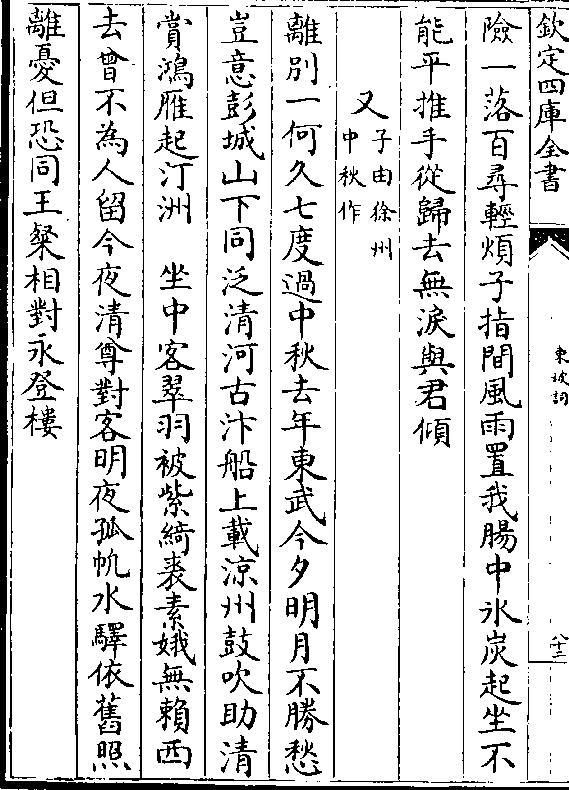 欽定四庫全書
東坡詞
八十二
險一落百尋輕煩子指間風雨置我腸中氷炭起坐不
能平推手從歸去無淚與君傾
又子由徐州
中秋作
離别一何久七度過中秋去年東武今夕明月不勝愁
豈意彭城山下同泛清河古汴船上載涼州鼓吹助清
賞鴻雁起汀洲　坐中客翠羽被紫綺裘素娥無賴西
去曾不為人留今夜清尊對客明夜孤帆水驛依舊照
離憂但恐同王粲相對永登樓